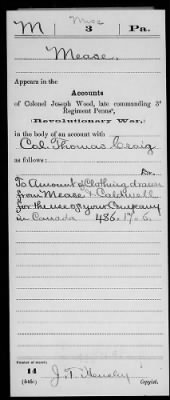 Misc
M | 3 | Pa.
Mease,
Appears in the
Accounts
of Colonel Joseph Wood, late commanding 3d
Regiment Penna.,
(Revolutionary War,)
in the body of an account with
Col. Thomas Craig
as follows:
Dr.
To Amount of Clothing drawn
from Mease & Caldwell
for the use of your Company
in Canada 486.17.6
Number of record:
14
(545c)
J. T. Hensley
Copyist.